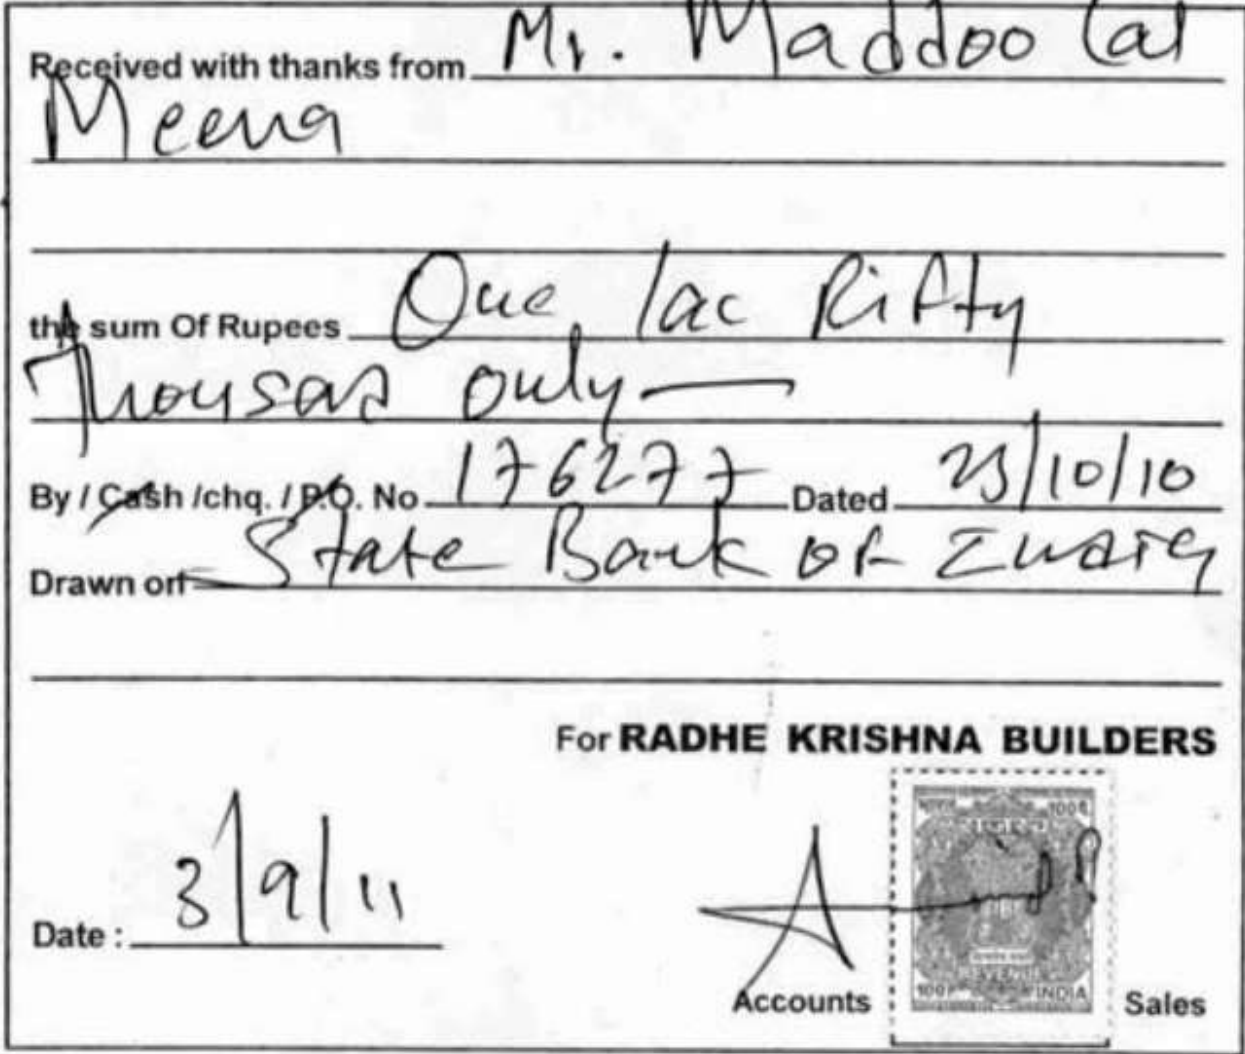 Received with thanks from Mr. Maddoo Lal
Meena
the sum Of Rupees One lac Fifty
Thousand only —
By / Cash /chq. / P.O. No 176277 Dated 25/10/10
Drawn on State Bank of India
For RADHE KRISHNA BUILDERS
Date : 3/9/11
Accounts
INDIA
Sales